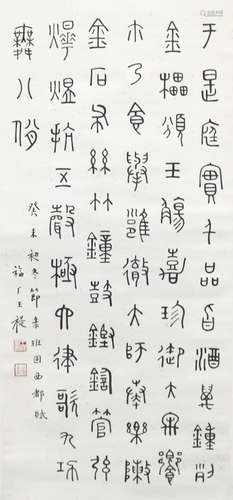 于是庭實千品旨酒萬鍾列
金櫑頒玉觴嘉珍御大牢饗
尒乃食舉雝徹大師奏樂陳
金石布絲竹鐘鼓鏗鍧管弦
燁煜抗五聲極六律歌九功
舞八佾
癸未初冬節彔班固西都賦
福厂王禔